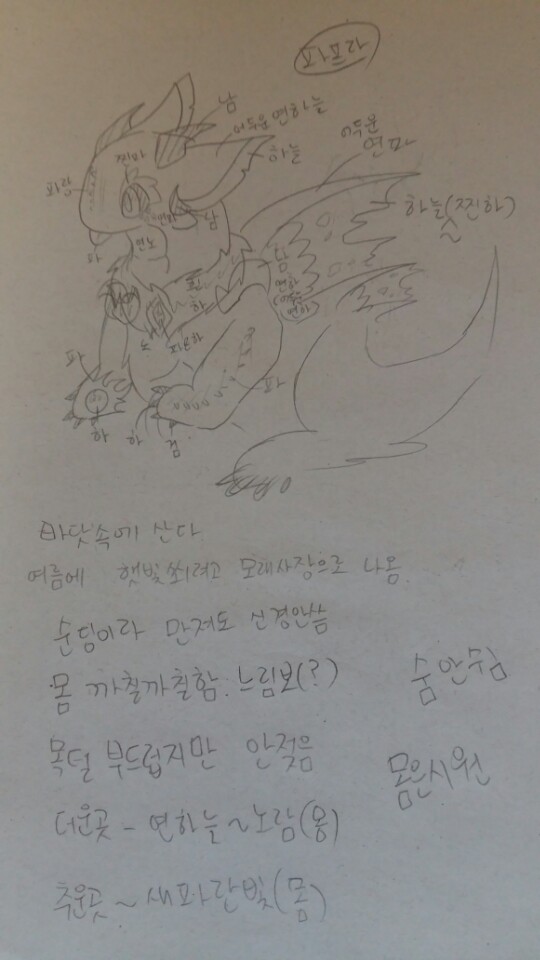 파프라
남
어두운 연하늘
하늘
어두운
연파
찐파
파랑
하늘(찐하)
연파
남
파
연노
남
연하
(어두운
연하)
흰
하
노
지느하
파
파
하
하
검
바닷속에 산다
여름에 햇빛쐬려고 모래사장으로 나옴
순덩이라 만져도 신경안씀
몸 까칠까칠함. 느림보(?)
숨 안쉼
목털 부드럽지만 안젖음
몸은시원
더운곳 - 연하늘~노람(몽)
추운곳 ~ 새파란빛(몸)